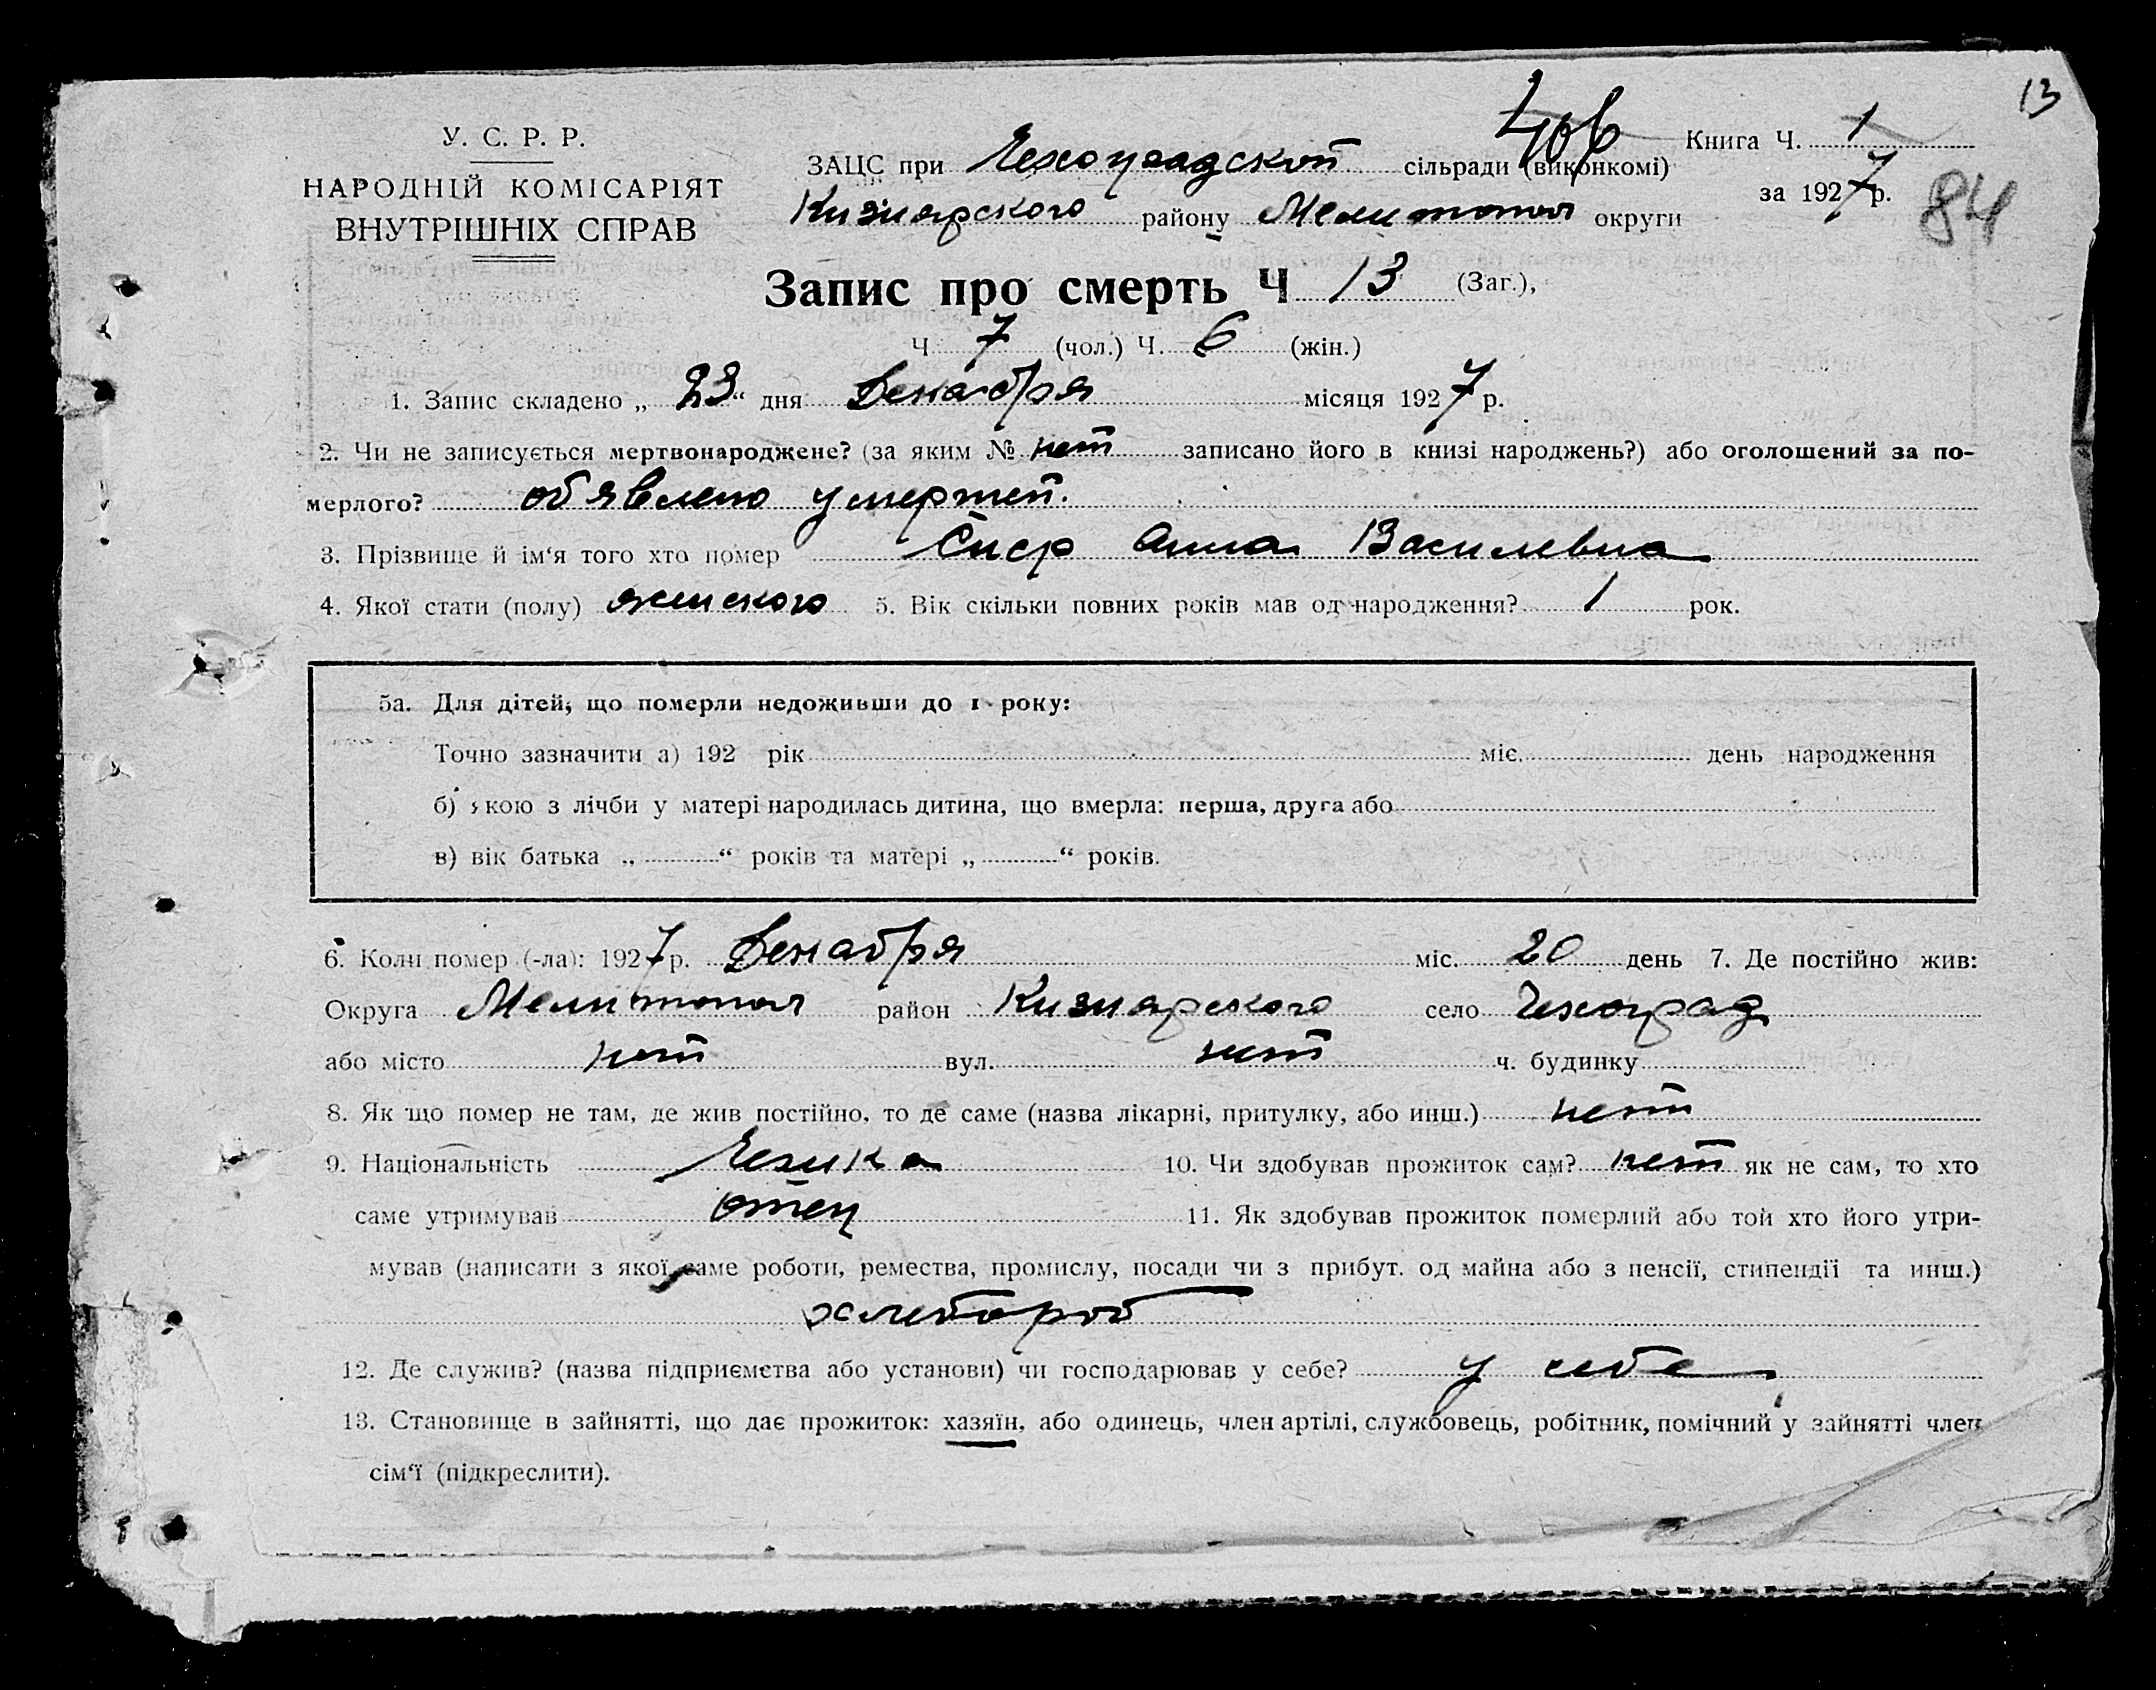 13
У. С. Р. Р.
НАРОДНІЙ КОМІСАРІЯТ
ВНУТРІШНІХ СПРАВ
ЗАЦС при Чехоградской сільради (виконкомі)
Книга Ч. 1
Кизиярского району Мелитопол округи
за 1927 р.
84
Запис про смерть Ч 13 (Заг.),
Ч. 7 (чол.) Ч. 6 (жін.)
1. Запис складено „ 23 “ дня Декабря місяця 1927 р.
2. Чи не записується мертвонароджене? (за яким № нет записано його в книзі народжень?) або оголошений за по-
мерлого? обявлено умершей.
3. Прізвище й ім'я того хто помер Анна Василевна
4. Якої стати (полу) женского 5. Вік скільки повних років мав од народження? 1 рок.
5а. Для дітей, що померли недоживши до 1 року:
Точно зазначити а) 192 рік міс. день народження
б) якою з лічби у матері народилась дитина, що вмерла: перша, друга або
в) вік батька „ “ років та матері „ “ років.
6. Коли помер (-ла): 1927 р. Декабря міс. 20 день 7. Де постійно жив:
Округа Мелитопол район Кизиярского село Чехоград
або місто нет вул. нет ч. будинку
8. Як що помер не там, де жив постійно, то де саме (назва лікарні, притулку, або инш.) нет
9. Національність Чешка 10. Чи здобував прожиток сам? нет як не сам, то хто
саме утримував отец 11. Як здобував прожиток померлий або той хто його утри-
мував (написати з якої саме роботи, ремества, промислу, посади чи з прибут. од майна або з пенсії, стипендії та инш.)
хлебороб
12. Де служив? (назва підприємства або установи) чи господарював у себе? у себе
13. Становище в зайнятті, що дає прожиток: хазяїн, або одинець, член артілі, службовець, робітник, помічний у зайнятті член
сім'ї (підкреслити).